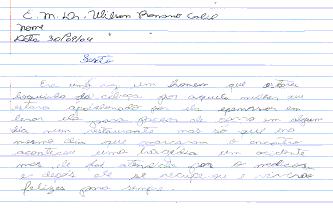 E. M. Dr. Wilson Romano Calil
Nome
Data 30/08/04
Texto
Era uma vez um homem que estava
loquinho da cabeça por aquela mulher ele
estava apaixonado por ela
ele para passear de carro em algum
dia num restaurante mas só que no
mesmo dia que marcaram o encontro
aconteceu uma tragédia um acidente
mas ele foi atendido por o médico
e depois ele se recuperou e viveram
felizes para sempre.